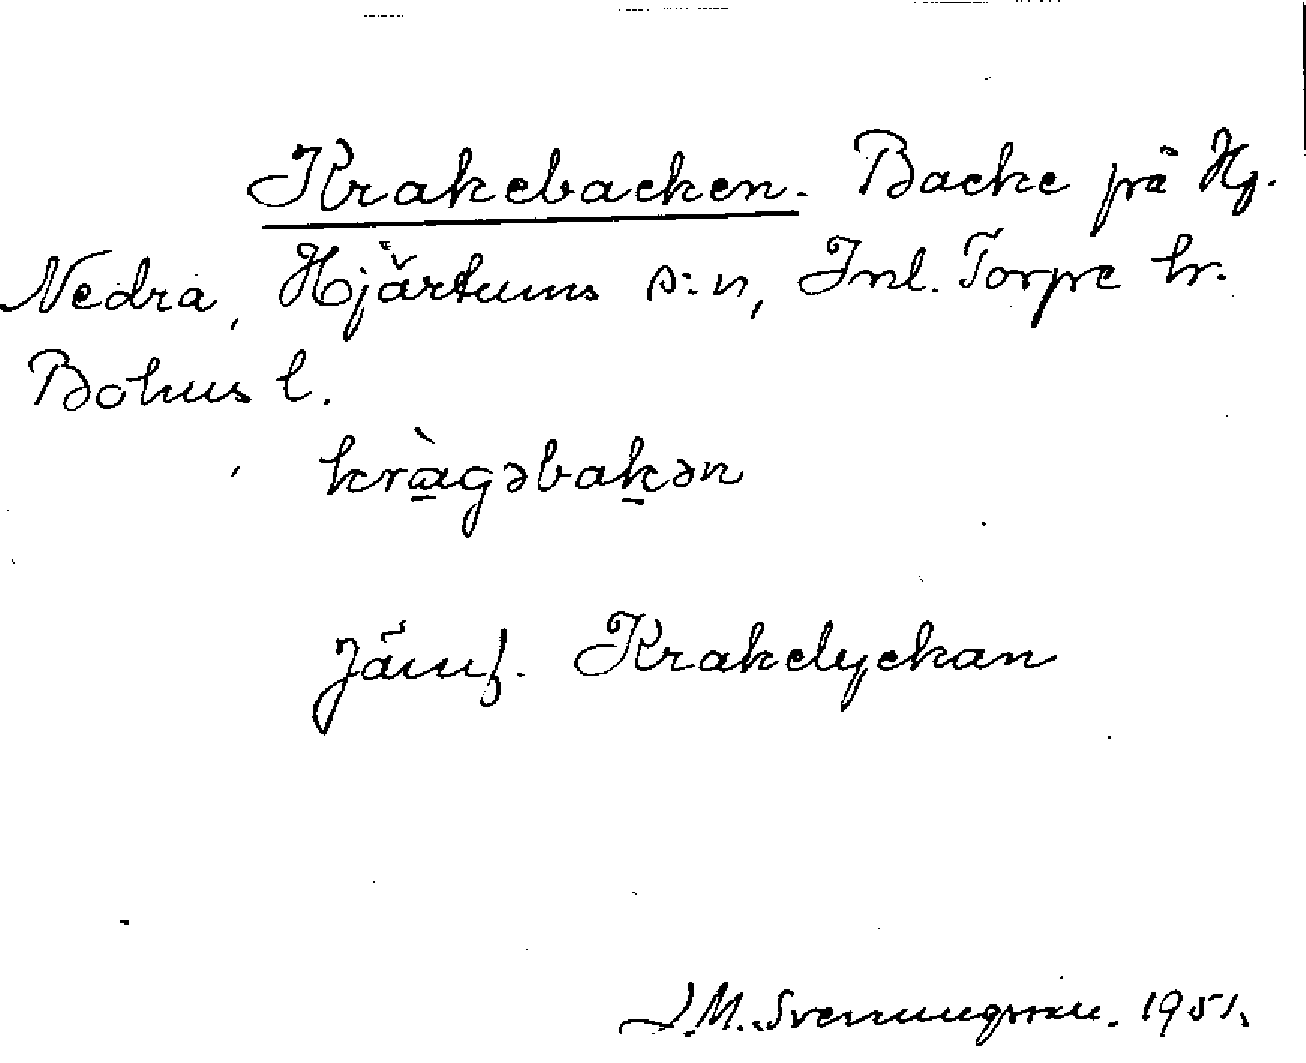 Krakebacken. Backe på Hg.
Nedra, Hjärtums s:n, Inl. Torpe hr.
Bohus l.
kràgəbakən
Jämf. Krakelyckan
J.M. Svenungsson. 1951.